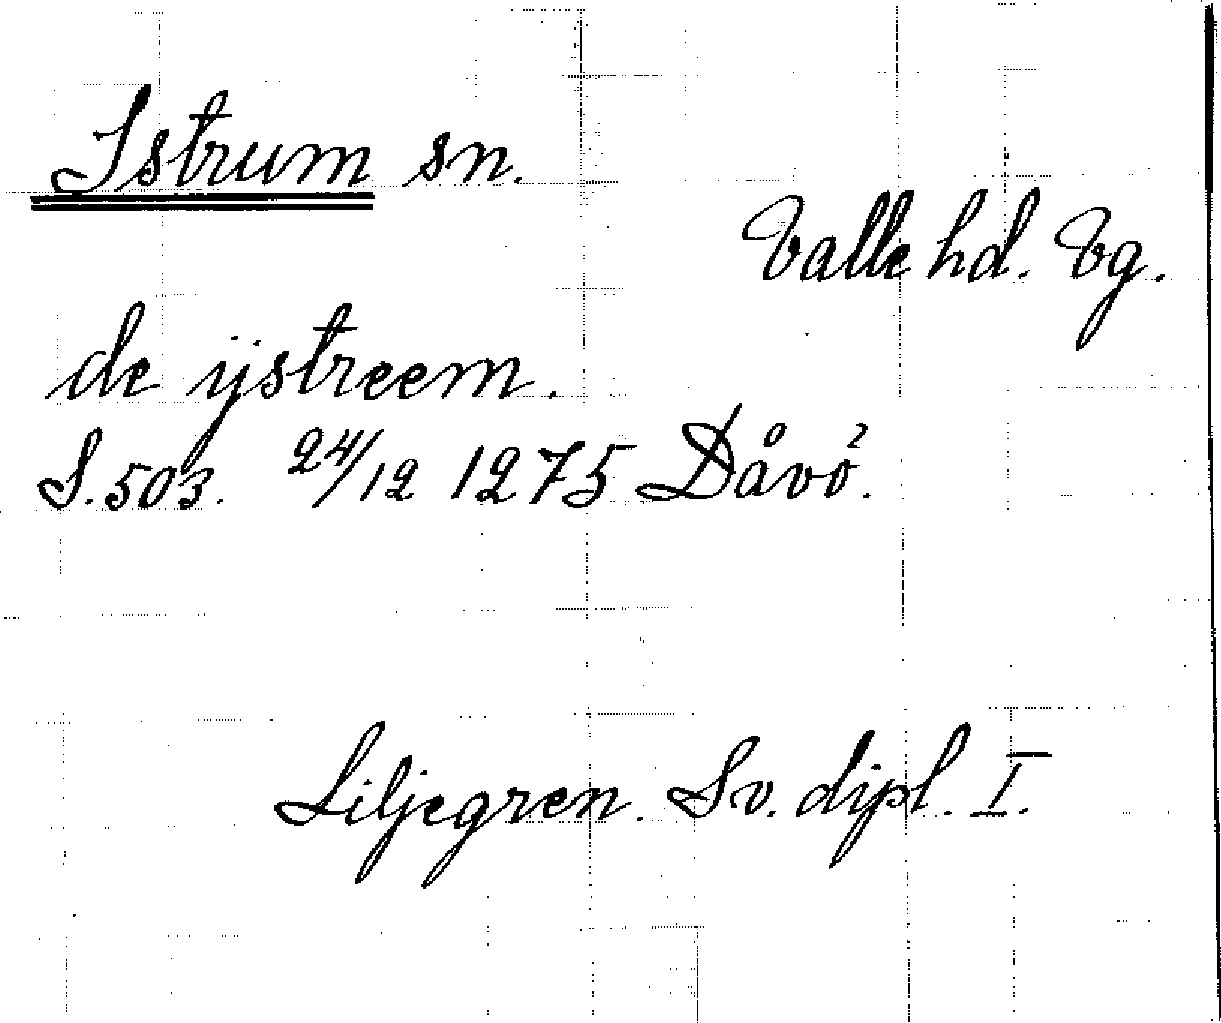 Istrum sn.
Valle hd. Vg.
de ijstreem.
S. 503. 24/12 1275 Dåvö².
Liljegren. Sv. dipl. I.